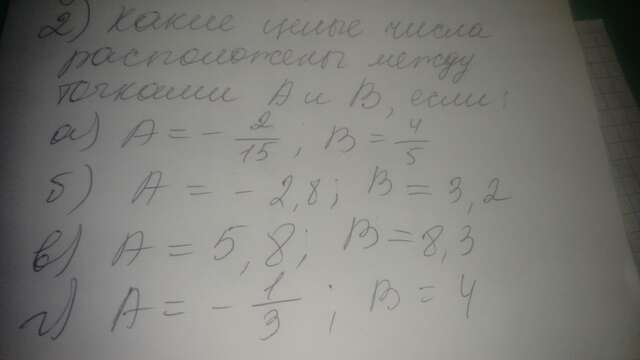 2) Какие целые числа
расположены между
точками A и B, если:
а) A = - 2/15; B = 4/5
б) A = - 2,8; B = 3,2
в) A = 5,8; B = 8,3
г) A = - 1/3; B = 4